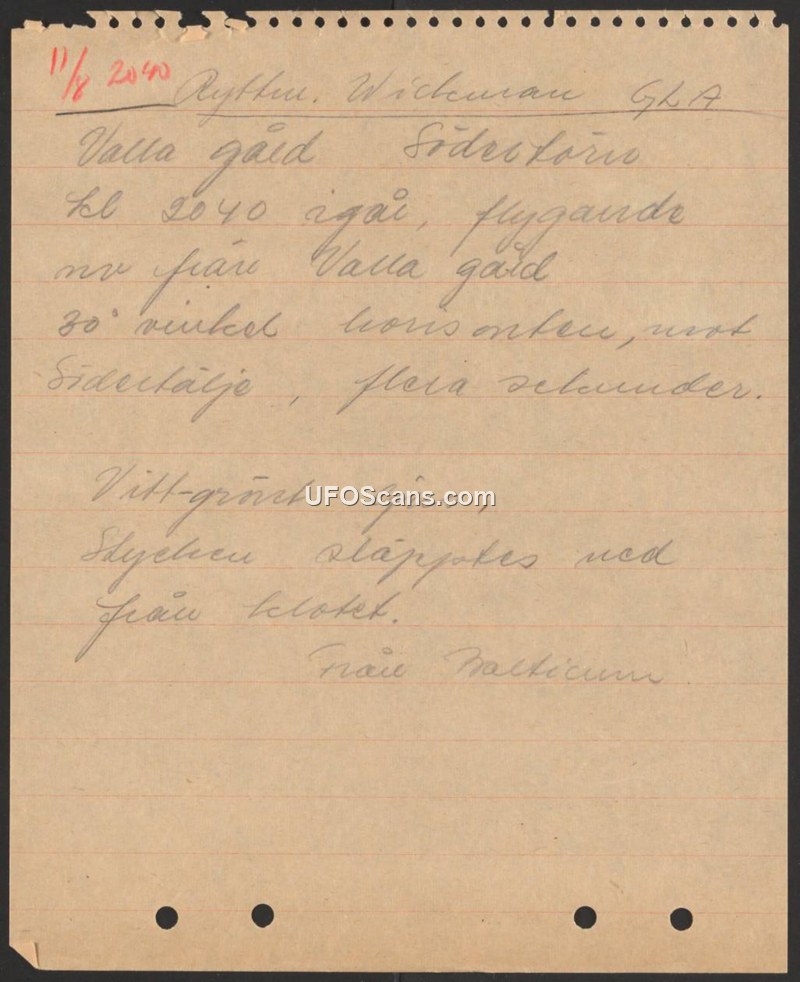 11/8 2040
Ryttm. Wickman GLA
Valla gård Södertörn
kl 2040 igår, flygande
nv från Valla gård
30° vinkel horisonten, mot
Södertälje, flera sekunder.
Vitt-grönt
UFOScans.com
Stycken släpptes ned
från klotet.
Från Balticum